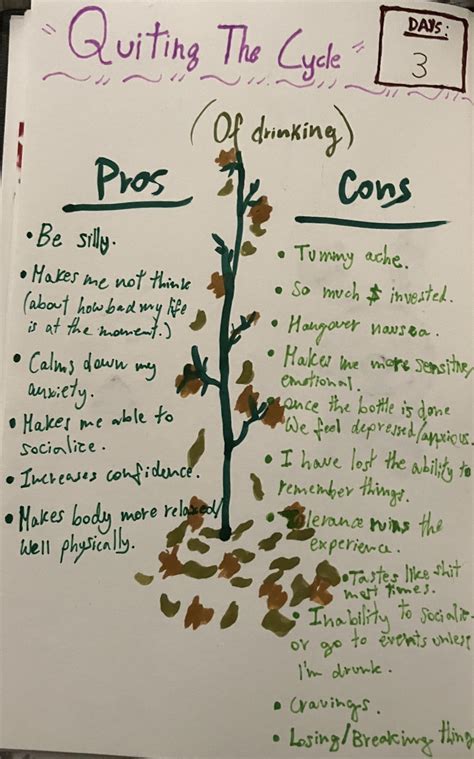 "Quiting The Cycle"
DAYS:
3
(Of drinking)
Pros
• Be silly.
• Makes me not think
(about how bad my life
is at the moment.)
• Calms down my
anxiety.
• Makes me able to
socialice.
• Increases confidence.
• Makes body more relaxed/
well physically.
Cons
• Tummy ache.
• So much $ invested.
• Hangover nausea.
• Makes me more sensitive/
emotional.
• once the bottle is done
We feel depressed/anxious.
• I have lost the ability to
remember things.
• Tolerance ruins the
experience.
• Tastes like shit
most times.
• Inability to socialice
or go to events unless
I'm drunk.
• Cravings.
• Losing/Breaking things